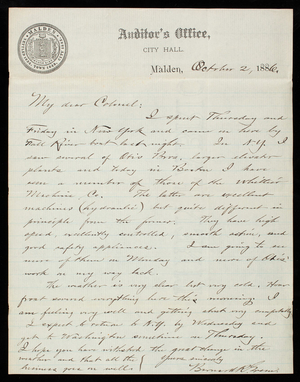 MALDEN
Auditor's Office,
CITY HALL.
Malden, October 2, 1886.
My dear Colonel:
I spent Thursday and
Friday in New York and came on here by
Fall River boat last night. In N.Y. I
saw several of Otis Bros. larger elevator
plants and today in Boston I have
seen a number of those of the Whittier
Machine Co. The latter are excellent
machines (hydraulic) but quite different in
principle from the former. They have high
speed, excellently controlled, smooth action, and
good safety appliances. I am going to see
more of them on Monday and more of Otis'
work on my way back.
The weather is very clear but very cold. Hear
frost around everything here this morning. I am
feeling very well and getting about very comfortably.
I expect to return to N.Y. by Wednesday and
get to Washington sometime on Thursday.
I hope you have witnessed the great change in the
weather and that all the
Yours sincerely
Bernard R. Green